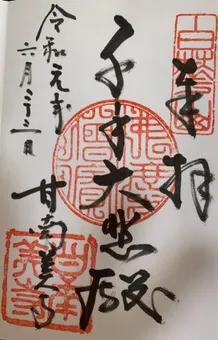 奉拝
千手大悲殿
令和元年
六月二十三日
甘南美寺
佛法僧寳